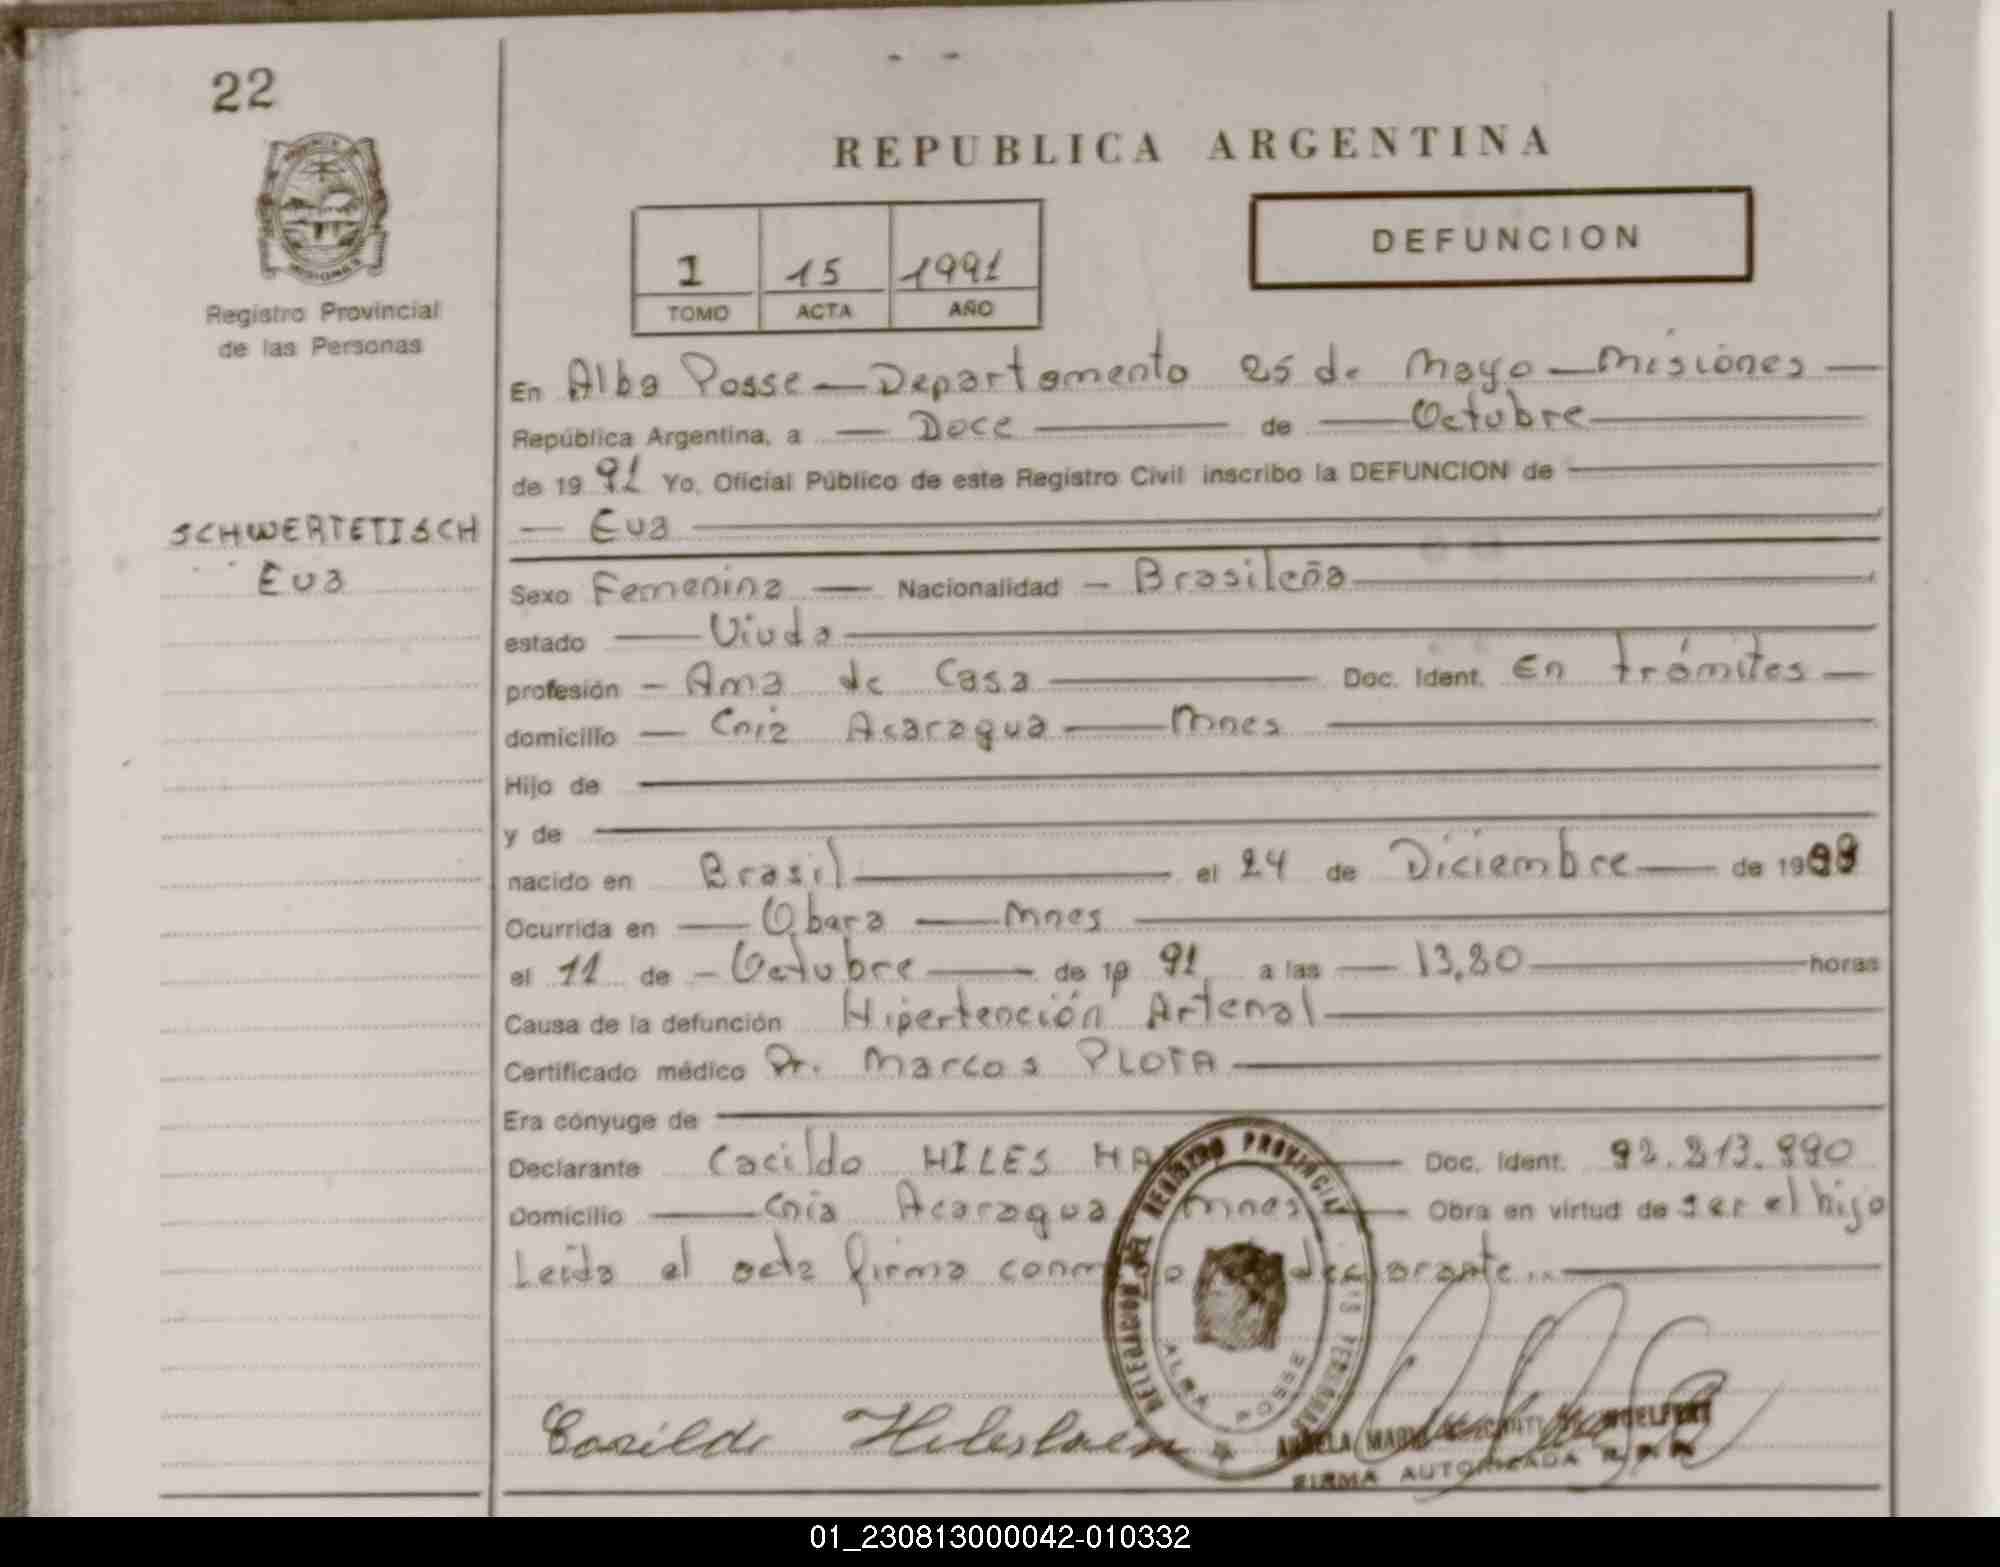 22
REPUBLICA ARGENTINA
DEFUNCION
1 15 1991
TOMO ACTA AÑO
MISIONES
Registro Provincial
de las Personas
En Alba Posse — Departamento 25 de Mayo — Misiones —
República Argentina, a — Doce — de — Octubre —
de 19 91 Yo, Oficial Público de este Registro Civil inscribo la DEFUNCION de —
SCHWERTETISCH
Eva
— Eva —
Sexo Femenina — Nacionalidad — Brasileña —
estado — Viuda —
profesión — Ama de Casa — Doc. Ident. En trámites —
domicilio — Cnia Acaragua — Mnes —
Hijo de —
y de —
nacido en Brasil — el 24 de Diciembre — de 19
Ocurrida en — Obera — Mnes —
el 11 de — Octubre — de 19 91 a las — 13,30 — horas
Causa de la defunción Hipertención Arterial —
Certificado médico Dr. Marcos PLOTA —
Era cónyuge de —
Declarante Cacildo HILES — Doc. Ident. 92.213.990
Domicilio — Cnia Acaragua Mnes — Obra en virtud de ser el hijo
Leida el acta firma declarante.. —
DELEGACION DEL REGISTRO PROVINCIAL DE LAS PERSONAS
ALBA POSSE
FIRMA AUTORIZADA
01_230813000042-010332